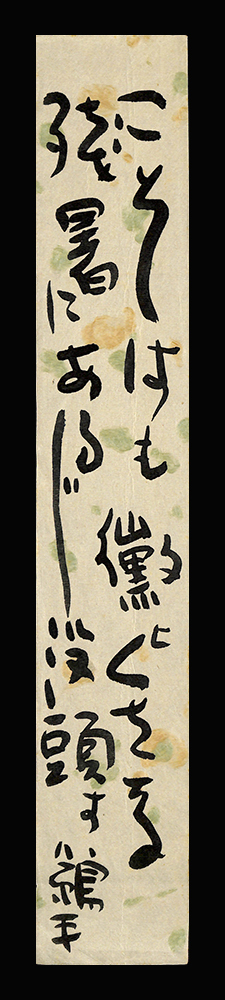 ことしはも黴くさる
残暑にあるじ没頭す